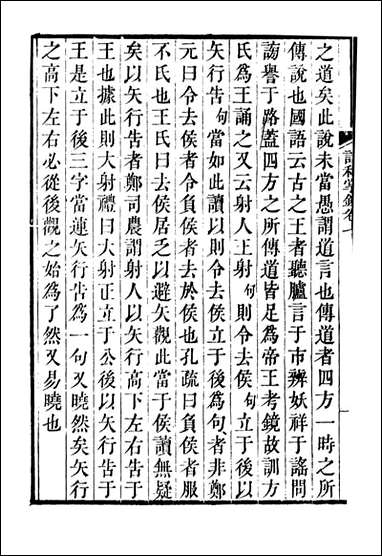 之道矣此說未當愚謂道言也傳道者四方一時之所
傳說也國語云古之王者聽臚言于市辨妖祥于謠問
謗譽于路蓋四方之所傳道皆足為帝王考鏡故訓方
氏為王誦之又云射人王射句則令去侯句立于後以
矢行告句當如此讀以則令去侯立于後為句者非鄭
元曰令去侯者去於侯也孔疏曰負侯者服
不氏也王氏曰去侯居乏以避矢觀此當于侯讀無疑
矣以矢行告者鄭司農謂射人以矢行高下左右告于
王也據此則大射禮曰大射正立于公後以矢行告于
王是立于後三字當連矢行告為一句又曉然矣矢行
之高下左右必從後觀之始為了然又易曉也